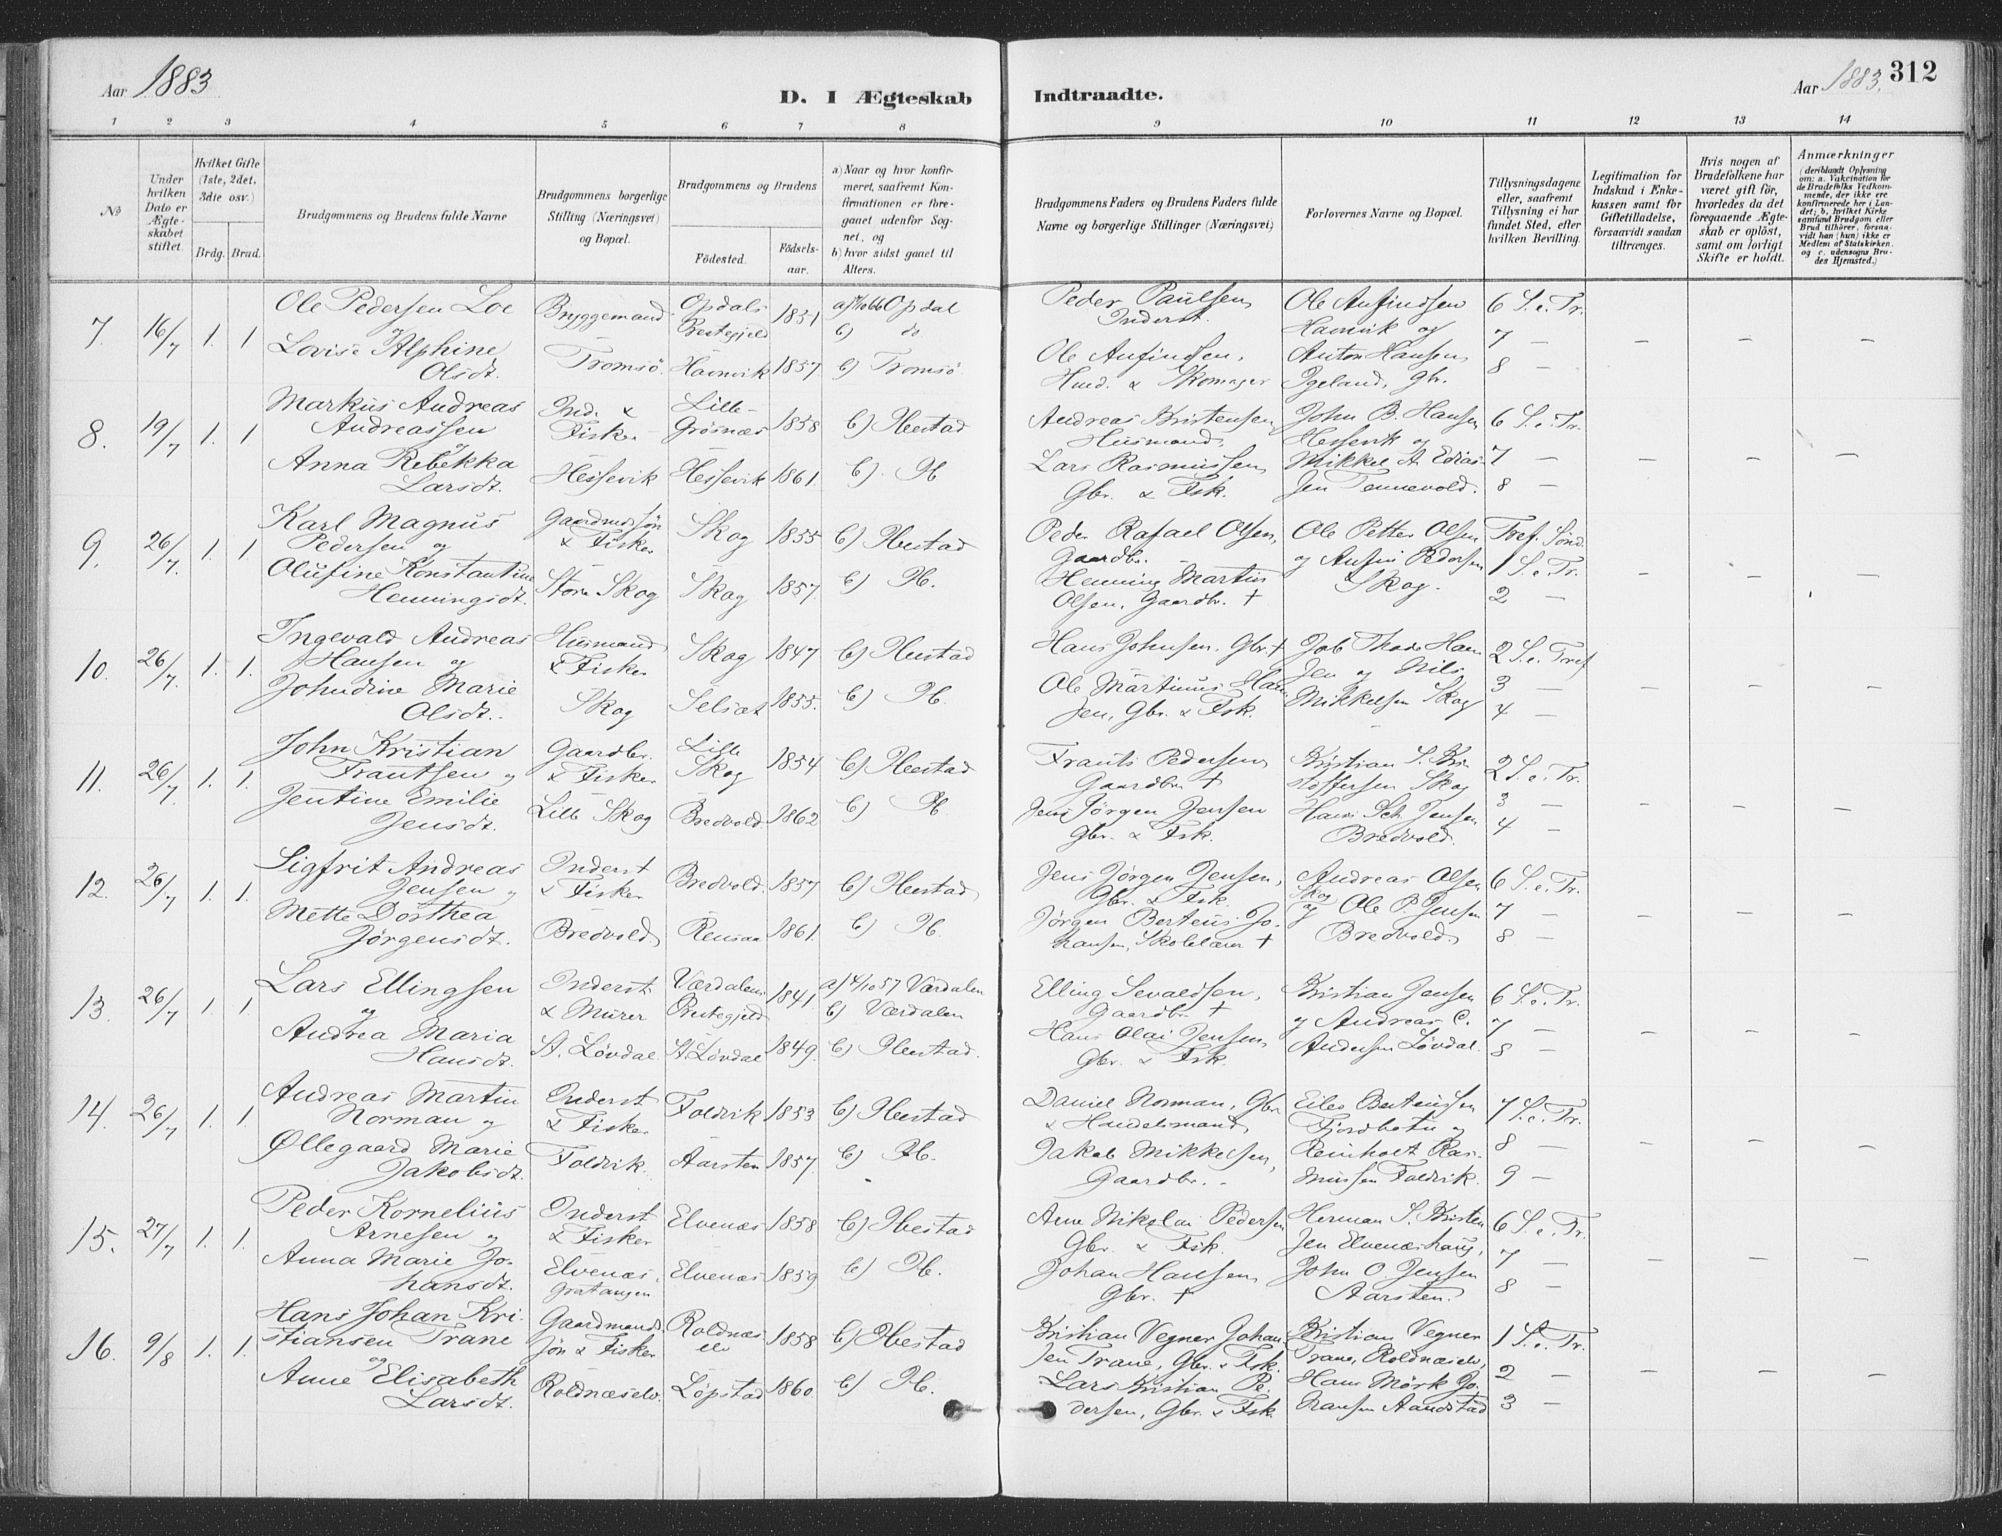 Aar 1883
D. I Ægteskab Indtraadte.
Aar 1883. 312
1 2 3 4 5 6 7 8 9 10 11 12 13 14
№
Under hvilken Dato er Ægteskabet stiftet.
Hvilket Gifte (1ste, 2det, 3die osv.)
Brdg. Brud.
Brudgommens og Brudens fulde Navne
Brudgommens borgerlige Stilling (Næringsvei) og Bopæl.
Brudgommens og Brudens
Födested.
Födsels-aar.
a) Naar og hvor konfirmeret, saafremt Konfirmationen er foregaaet udenfor Sognet, og
b) hvor sidst gaaet til Alters.
Brudgommens Faders og Brudens Faders fulde Navne og borgerlige Stillinger (Næringsvei)
Forlovernes Navne og Bopæl.
Tillysningsdagene eller, saafremt Tillysning ei har fundet Sted, efter hvilken Bevilling.
Legitimation for Indskud i Enkekassen samt for Giftetilladelse, forsaavidt saadan tiltrænges.
Hvis nogen af Brudefolkene har været gift för, hvorledes da det foregaaende Ægteskab er oplöst, samt om lovligt Skifte er holdt.
Anmærkninger
(deriblandt Oplysning om: a. Vaccination for de Brudefolks Vedkommende, der ikke ere konfirmerede her i Landet; b. hvilket Kirkesamfund Brudgom eller Brud tilhörer, forsaavidt han (hun) ikke er Medlem af Statskirken, og c. udensogns Brudes Hjemsted.)
7. 16/7 1. 1
Ole Pedersen Loe
og
Lovise Alphine
Olsdt.
Bryggemand
Tromsö.
Opdals Prestegjeld 1851
Havnvik 1857
Opdal
b) do
b) Tromsö
Peder Paulsen
Inderst.
Ole Anfindsen,
Husmd. & Skomager
Ole Anfindsen
Havnvik og
Anton Hansen
Igeland, Gbr.
6 S. e. Tr.
7 —
8 —
8. 19/7 1. 1
Markus Andreas
Andreassen
og
Anna Rebekka
Larsdt.
Ind. &
Fisker
Hessevik
Lille-
Grøsnæs 1858
Hessevik 1861
b) Ibestad
b) Ib.
Andreas Kristensen
Husmand.
Lars Rasmussen
Gbr. & Fsk.
John B. Hansen
Hessevik og
Mikkel A. Edias-
sen Tennevold.
6 S. e. Tr.
7 —
8 —
9. 26/7. 1. 1
Karl Magnus
Pedersen og
Olufine Konstantine
Henningsdt.
Gaardmdssøn
& Fisker
Store Skog
Skog 1855
Skog 1857
b) Ibestad
b) Ib.
Peder Rafael Olsen,
Gaardbr.
Henning Martin
Olsen, Gaardbr. †
Ole Petter Olsen
og Anfin Pedersen
Skog.
Tref. Sønd.
1 S. e. Tr.
2 —
10. 26/7. 1. 1.
Ingevald Andreas
Hansen og
Johndine Marie
Olsdt.
Husmand
& Fisker
Skog
Skog 1847
Selsæt 1855.
b) Ibestad
b) Ib.
Hans Johnsen. Gbr. †
Ole Martinus Han-
sen, Gbr. & Fsk.
Job Thode Han-
sen og Nils
Mikkelsen Skog
2 S. e. Tref
3 —
4 —
11. 26/7. 1. 1.
John Kristian
Frantsen og
Jentine Emilie
Jensdt.
Gaardbr.
& Fisker
Lille Skog
Lille
Skog 1854
Bredvold 1862
b) Ibestad
b) Ib.
Frants Pedersen
Gaardbr. †
Jens Jørgen Jensen
Gbr. & Fsk.
Kristian S. Kri-
stoffersen Skog
Hans Sch. Jensen
Bredvold.
2 S. e. Tr.
3 —
4 —
12. 26/7 1. 1.
Sigfrit Andreas
Jensen og
Mette Dorthea
Jørgensdt.
Inderst
& Fisker
Bredvold
Bredvold. 1857
Rensaa 1861.
b) Ibestad
b) Ib.
Jens Jørgen Jensen,
Gbr. & Fsk.
Jørgen Berteus Jo-
hansen, Skolelærer †
Andreas Olsen
Skog
og Ole P. Jensen
Bredvold.
6 S. e. Tr.
7 —
8 —
13. 26/7 1. 1
Lars Ellingsen
og
Andrea Maria
Hansdt.
Inderst
& Murer
St. Løvdal
Værdalens
Prestegjeld 1841.
St. Løvdal 1849.
a) 4/10 57 Værdalen
b) Værdalen
b) Ibestad.
Elling Sevaldsen,
Gaardbr. †
Hans Olai Jensen,
Gbr. & Fsk.
Kristian Jensen
og Andreas C.
Andersen Løvdal.
6 S. e. Tr.
7 —
8 —
14. 26/7 1. 1.
Andreas Martin
Norman og
Øllegaard Marie
Jakobsdt.
Inderst
& Fisker
Foldvik.
Foldvik 1853
Aarsten 1857.
b) Ibestad
b) Ib.
Daniel Norman, Gbr.
& Handelsmand
Jakob Mikkelsen,
Gaardbr.
Eiler Berteussen
Fjordbotn og
Reinholt Ras-
mussen Foldvik.
7 S. e. Tr.
8 —
9 —
15. 27/7 1. 1.
Peder Kornelius
Arnesen og
Anna Marie Jo-
hansdt.
Inderst
& Fisker
Elvenæs,
Gratangen
Elvenæs 1858
Elvenæs 1859
b) Ibestad
b) Ib.
Arne Nikolai Pedersen
Gbr. & Fsk.
Johan Hansen,
Gbr. †
Herman S. Kristen-
sen Elvenæshaug,
John O. Jensen
Aarsten.
6 S. e. Tr.
7 —
8 —
16. 9/8 1. 1.
Hans Johan Kri-
stiansen Trane
og
Anne Elisabeth
Larsdt.
Gaardmands-
søn & Fisker
Roldnæselv.
Roldnæs
elv 1858
Løpstad 1860
b) Ibestad
b) Ib.
Kristian Vegner Johan-
sen Trane, Gbr. & Fsk.
Lars Kristian Pe-
dersen, Gbr. & Fsk.
Kristian Vegner
Trane, Roldnæselv,
Hans Mørk Jo-
hansen Aandstad
1 S. e. Tr.
2 —
3 —